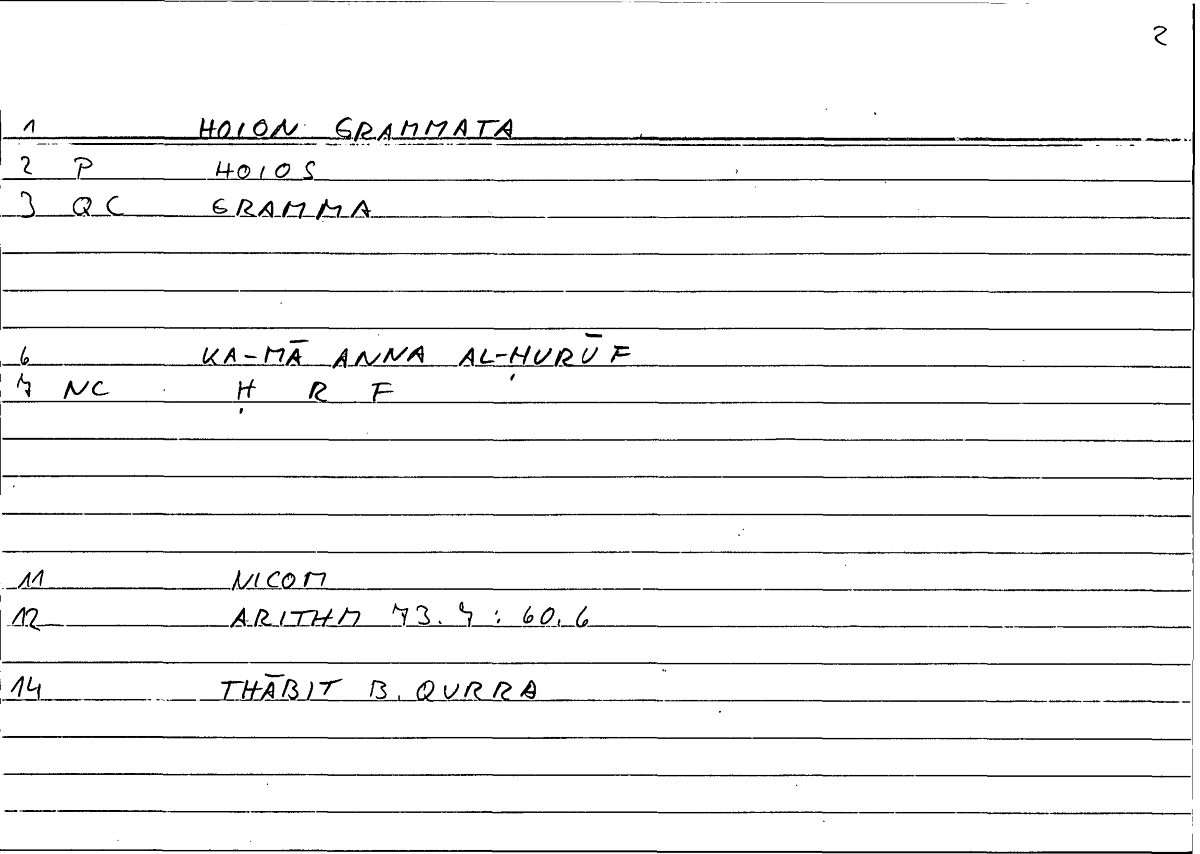 2
1 HOION GRAMMATA
2 P HOIOS
3 QC GRAMMA
6 KA-MĀ ANNA AL-ḤURŪF
7 NC Ḥ R F
11 NICOM
12 ARITHM 73.7 : 60.6
14 THĀBIT B. QURRA